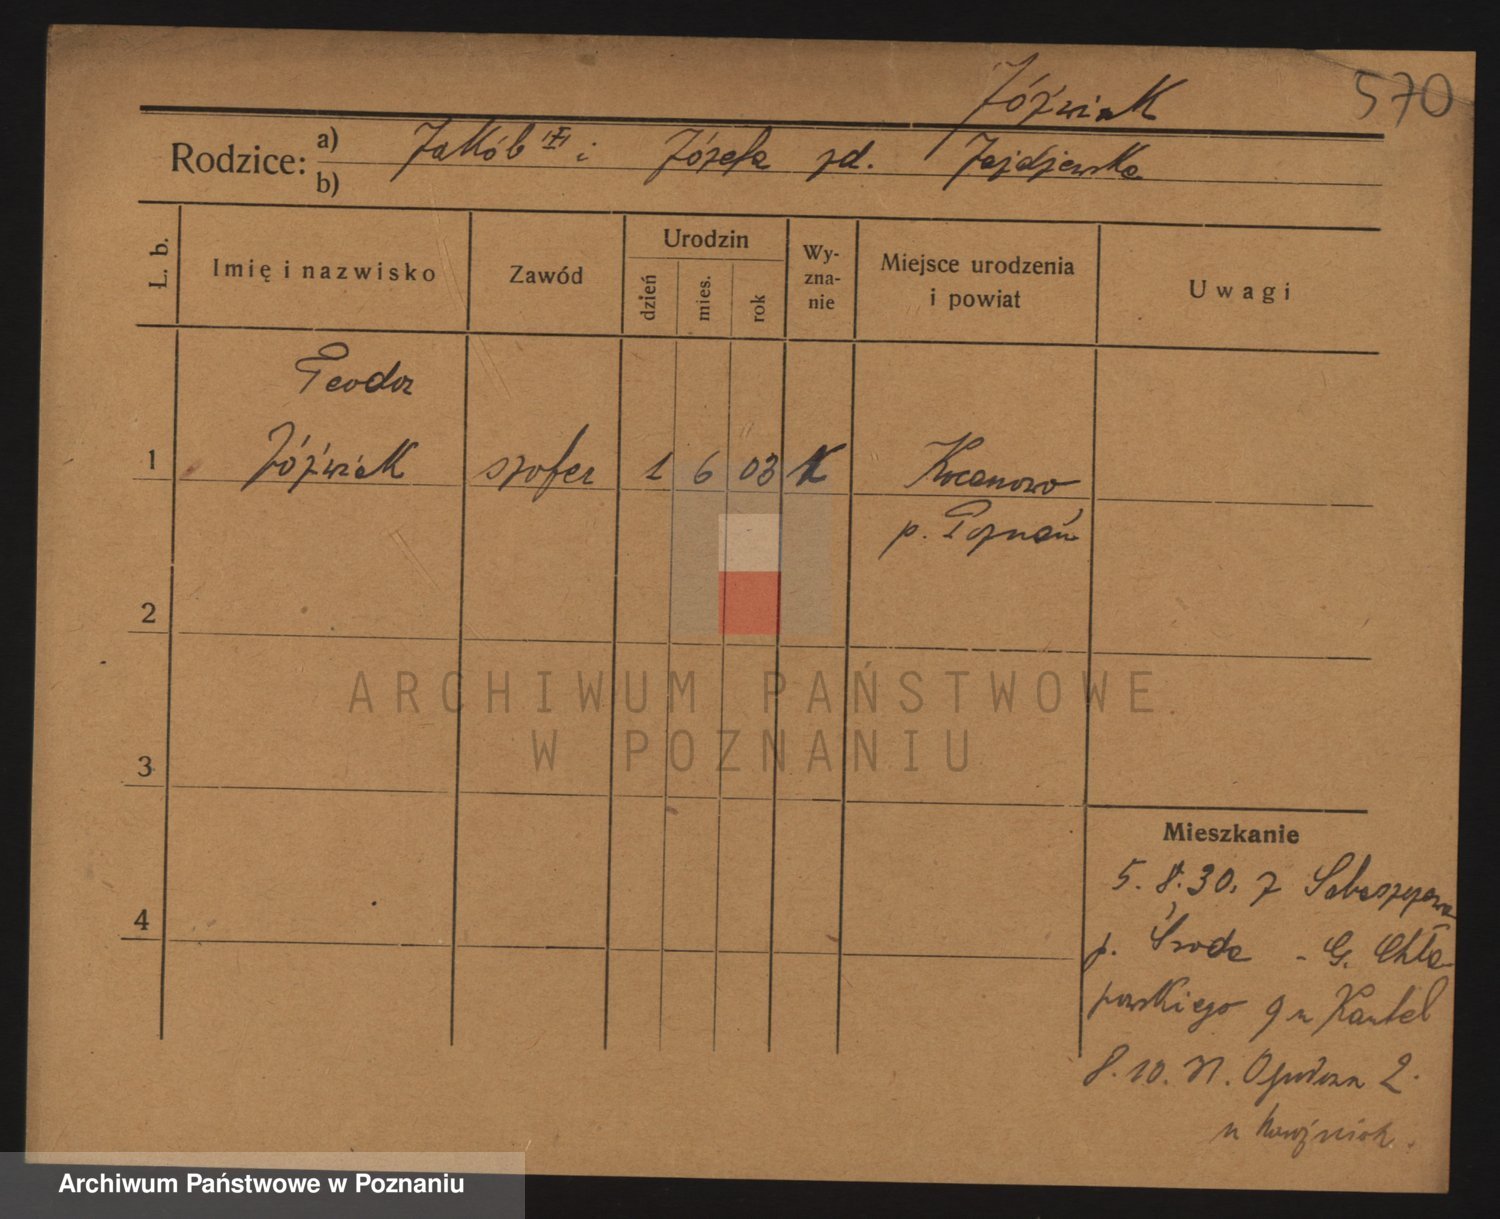 Jóźwiak
570
Rodzice: a) Jakób i Józefa zd. Zajdzewska
b)
L. b. Imię i nazwisko Zawód Urodzin dzień mies. rok Wy-zna-nie Miejsce urodzenia i powiat Uwagi
Teodor
1 Jóźwiak szofer 1 6 03 K Kocanowo
p. Poznań
2
ARCHIWUM PAŃSTWOWE
W POZNANIU
3
Mieszkanie
5. 8. 30. z
4
p. Środa - G. Chła
powskiego 9 u Kantel
8. 10. 31. Ogrodowa 2.
u
Archiwum Państwowe w Poznaniu